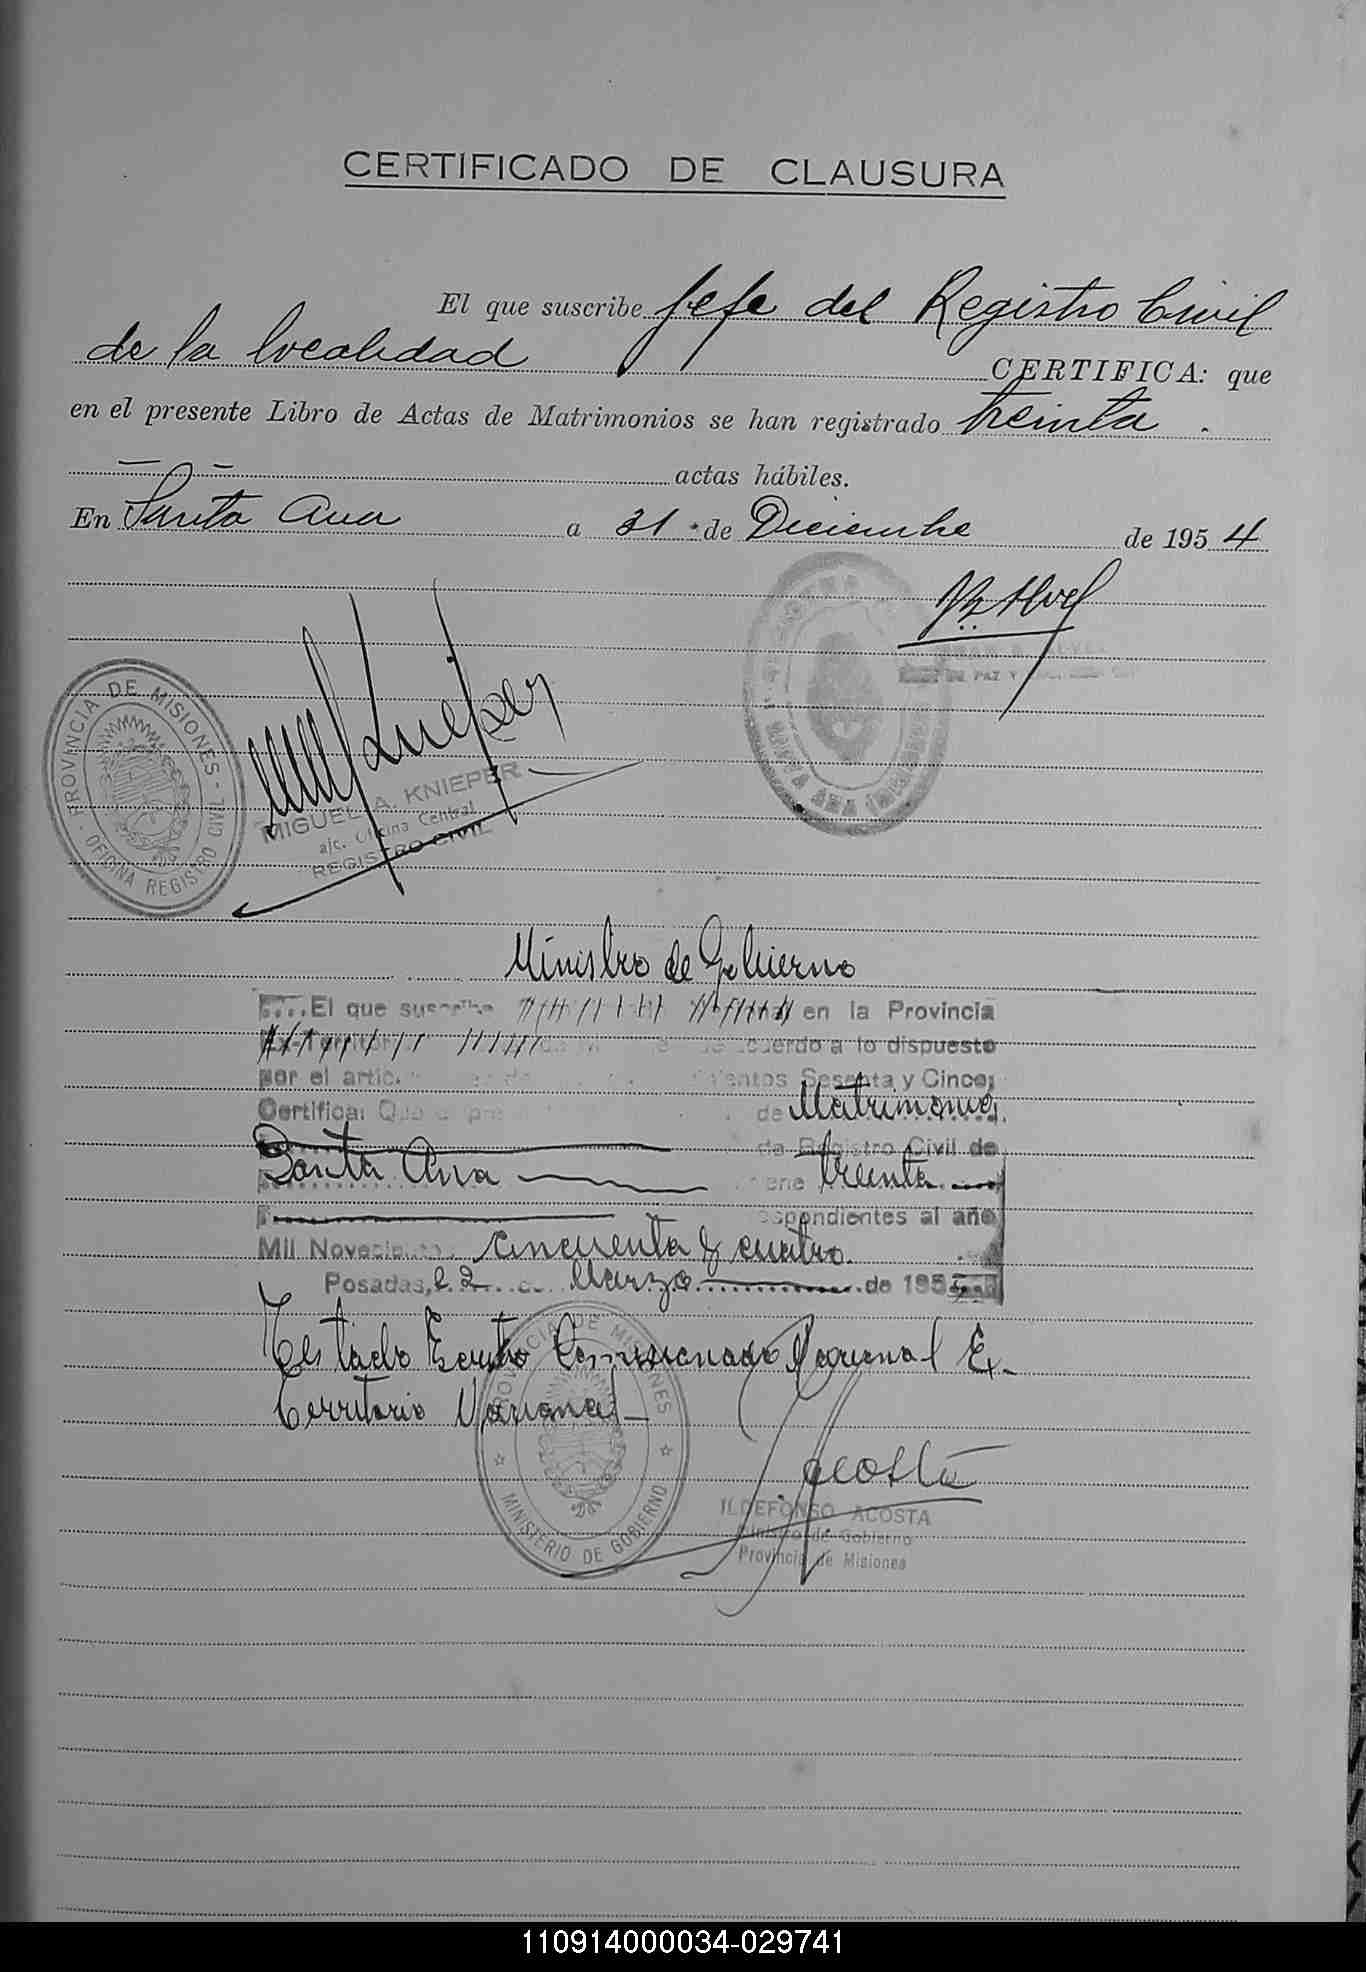 CERTIFICADO DE CLAUSURA
El que suscribe Jefe del Registro Civil
de la localidad CERTIFICA: que
en el presente Libro de Actas de Matrimonios se han registrado treinta.
actas hábiles.
En Santa Ana a 31 de Diciembre de 1954
PROVINCIA DE MISIONES
OFICINA REGISTRO CIVIL
Knieper
MIGUEL A. KNIEPER
a/c. Oficina Central
REGISTRO CIVIL
DE PAZ Y
SANTA ANA (MISIONES)
Ministro de Gobierno
El que suscribe en la Provincia
Ex-Territorio acuerdo a lo dispuesto
por el artic. Sesenta y Cinco;
Certifica: Que de Matrimonios
de Registro Civil de
Santa Ana treinta
al año
Mil Novecientos cincuenta y cuatro.
Posadas, 22 de Marzo de 195
Testado Escrito Comisionado Nacional Ex-
Territorio Nacional
PROVINCIA DE MISIONES
MINISTERIO DE GOBIERNO
Acosta
ILDEFONSO ACOSTA
Ministro de Gobierno
Provincia de Misiones
110914000034-029741